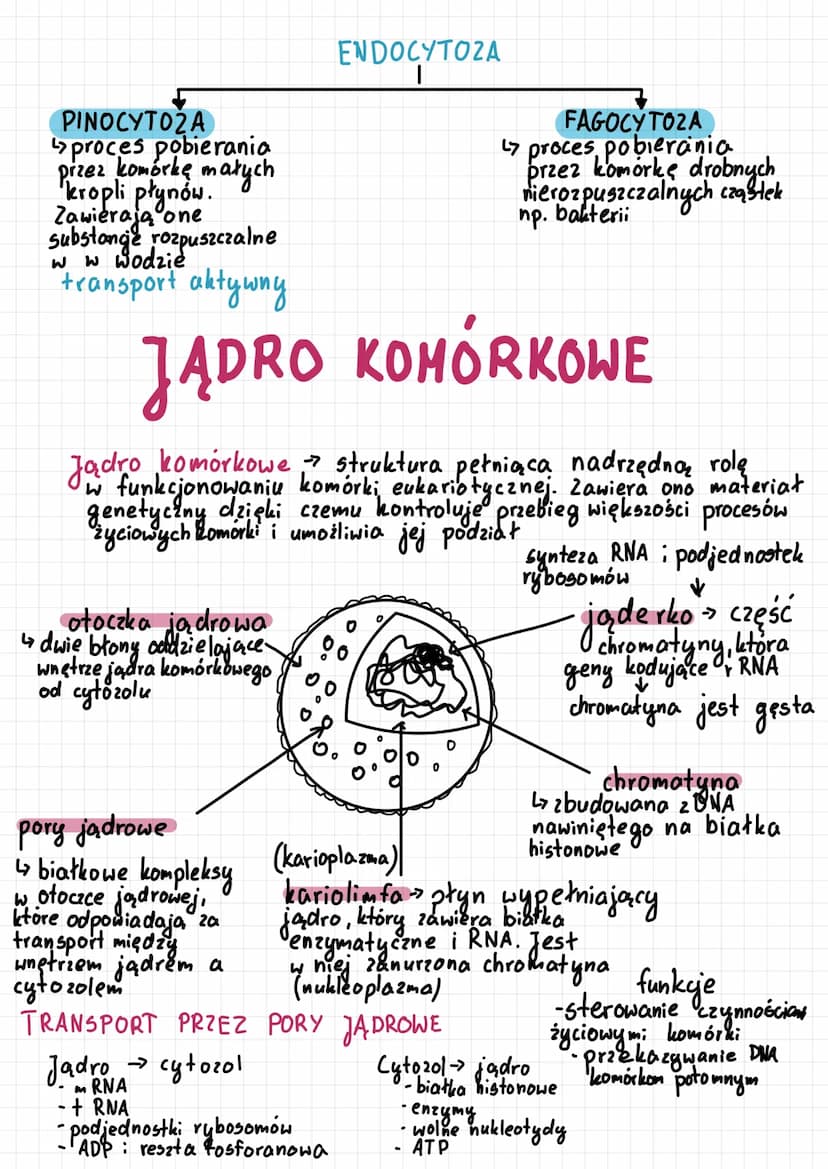 ENDOCYTOZA
PINOCYTOZA
↳ proces pobierania
przez komórkę małych
kropli płynów.
Zawierają one
substancje rozpuszczalne
w w wodzie
transport aktywny
FAGOCYTOZA
↳ proces pobierania
przez komórkę drobnych
nierozpuszczalnych cząstek
np. bakterii
JĄDRO KOMÓRKOWE
Jądro komórkowe → struktura pełniąca nadrzędną rolę
w funkcjonowaniu komórki eukariotycznej. Zawiera ono materiał
genetyczny dzięki czemu kontroluje przebieg większości procesów
życiowych komórki i umożliwia jej podział
synteza RNA i podjednostek
rybosomów
otoczka jądrowa
↳ dwie błony oddzielające
wnętrze jądra komórkowego
od cytozolu
jąderko → część
chromatyny, która
geny kodujące r RNA
chromatyna jest gęsta
chromatyna
↳ zbudowana z DNA
nawiniętego na białka
histonowe
pory jądrowe
↳ białkowe kompleksy
w otoczce jądrowej,
które odpowiadają za
transport między
wnętrzem jądrem a
cytozolem
(karioplazma)
kariolimfa → płyn wypełniający
jądro, który zawiera białka
enzymatyczne i RNA. Jest
w niej zanurzona chromatyna
(nukleoplazma)
funkcje
-sterowanie czynnościam
życiowymi komórki
- przekazywanie DNA
komórkom potomnym
TRANSPORT PRZEZ PORY JĄDROWE
Jądro → cytozol
- mRNA
- t RNA
- podjednostki rybosomów
- ADP i reszta fosforanowa
Cytozol → jądro
- białka histonowe
- enzymy
- wolne nukleotydy
- ATP